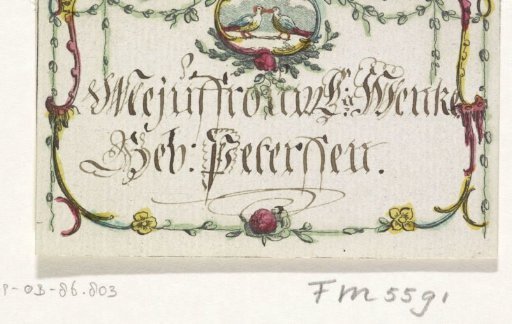 Mejuffrouw Menke
Geb: Peterssen.
P-OB-86.803
FM 5591